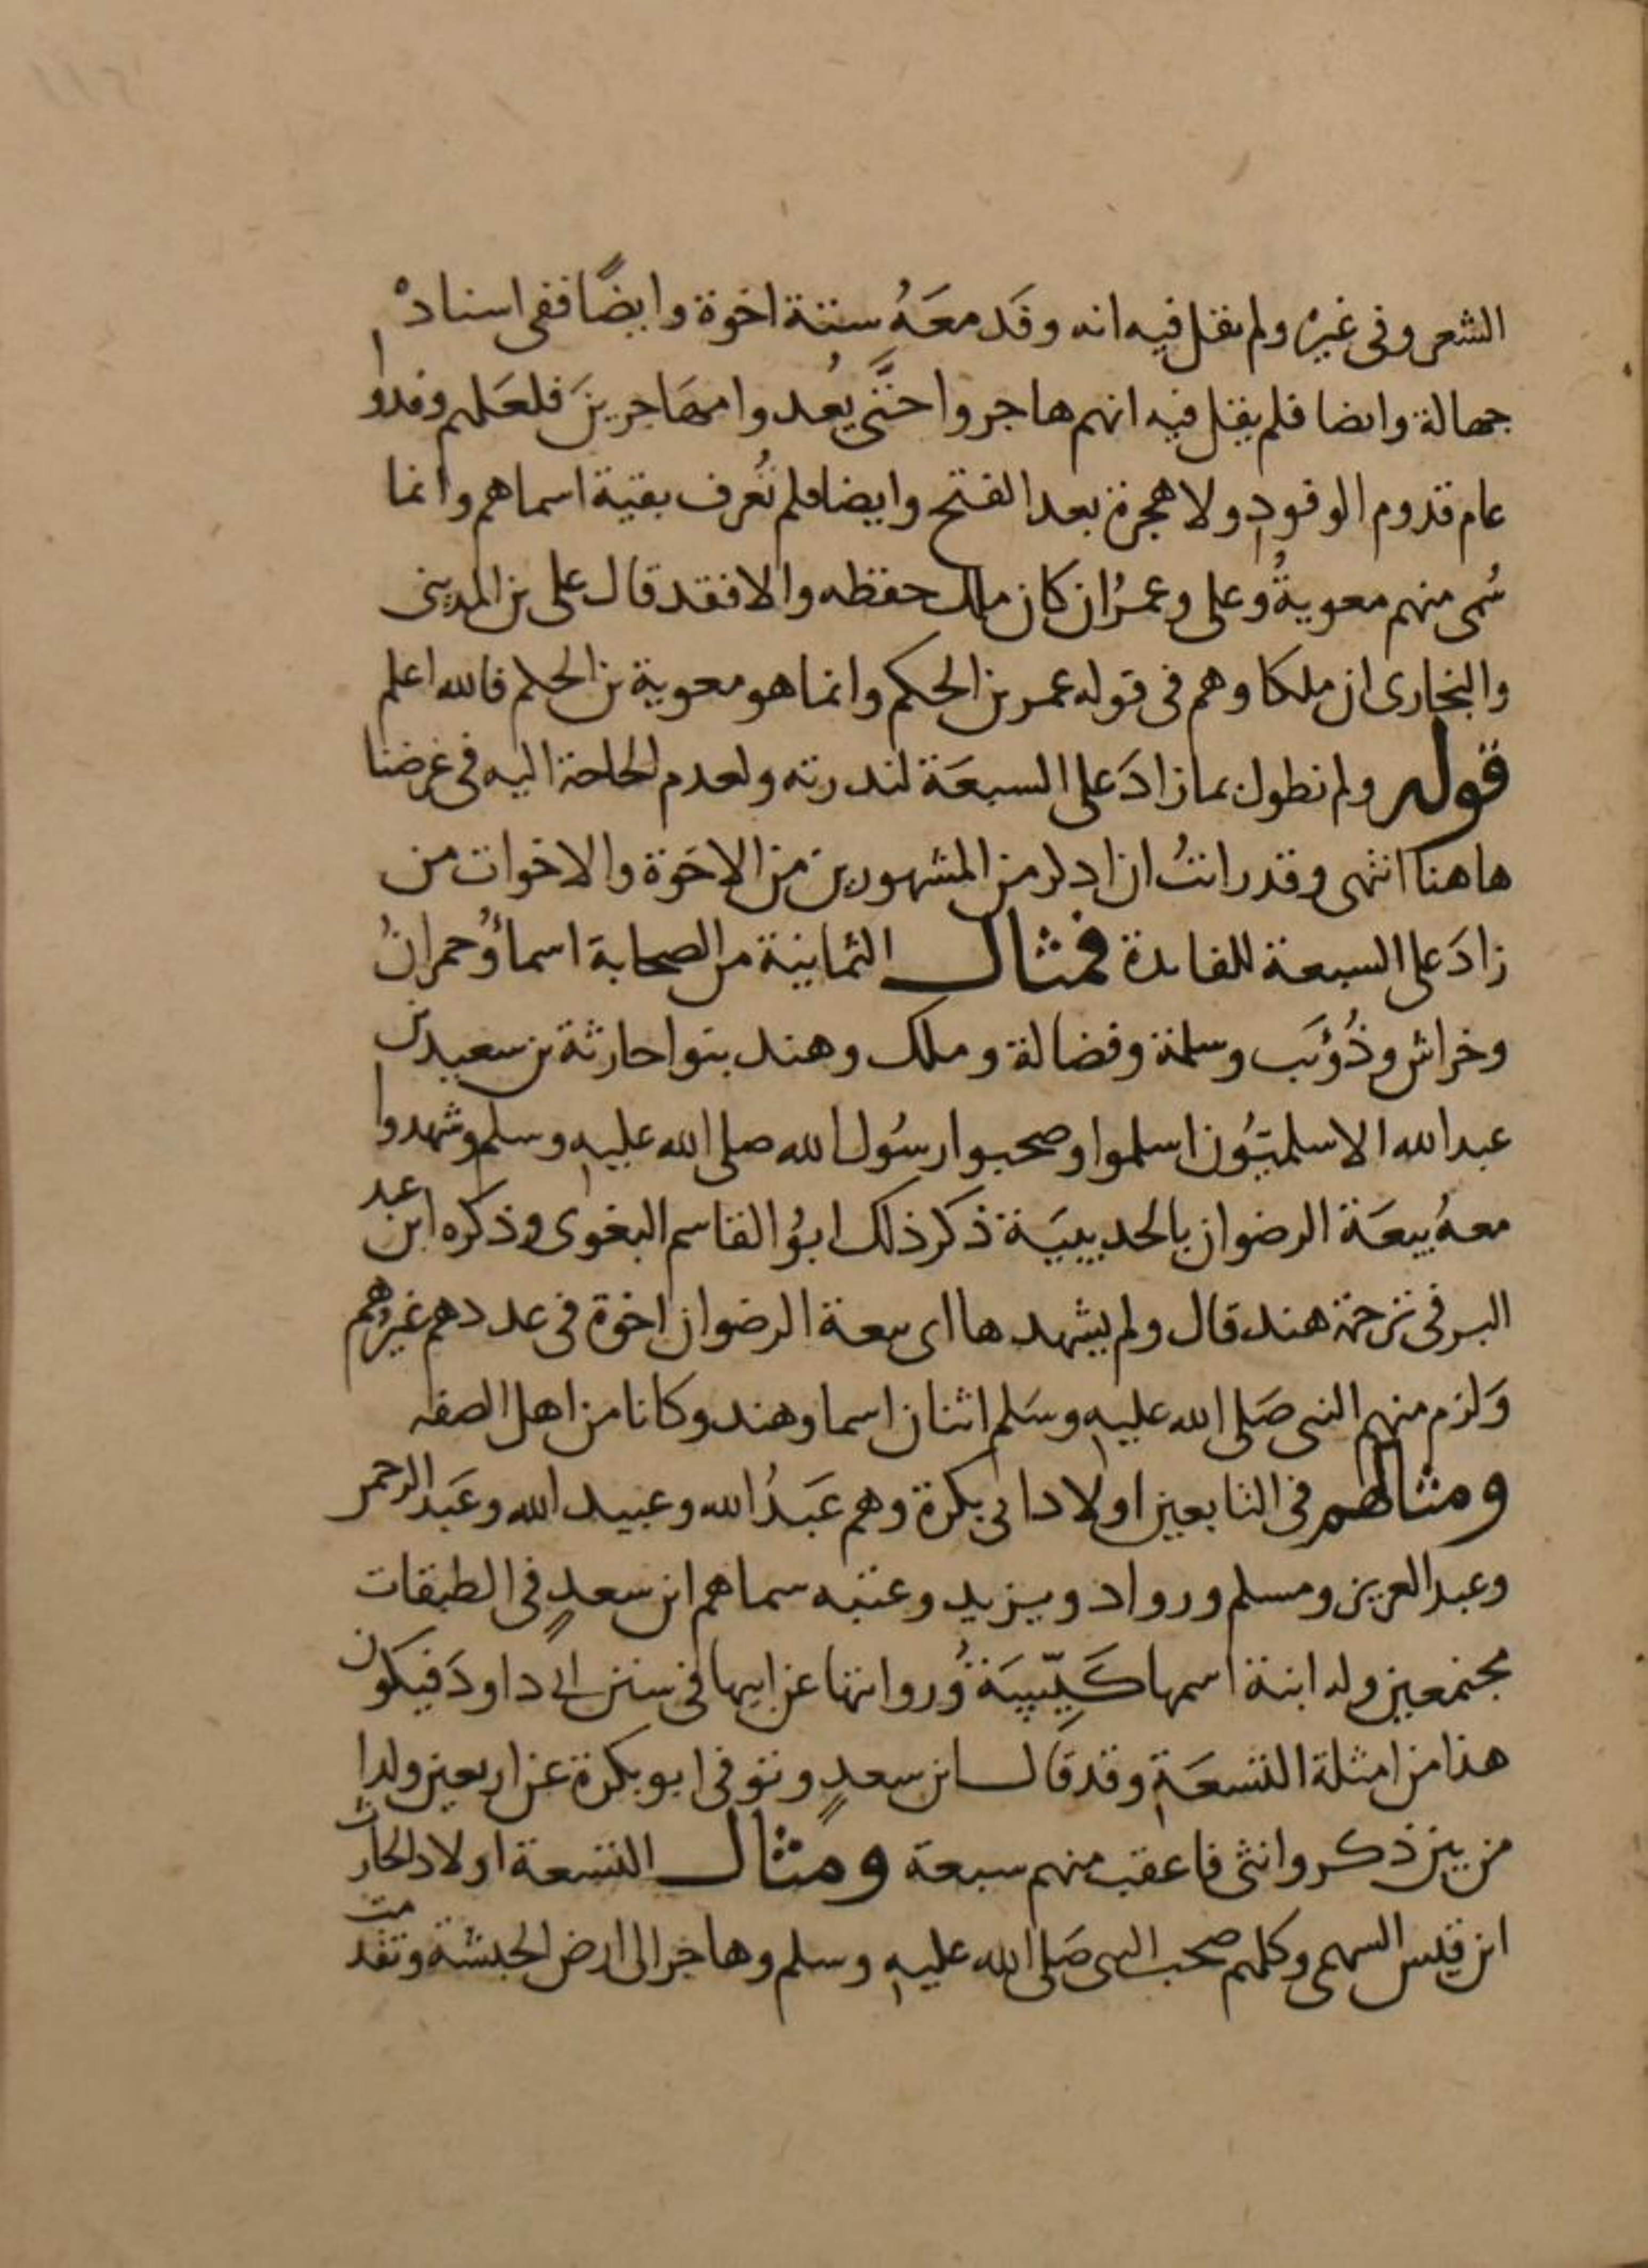 الشعر وفى غيره ولم يقل فيه انه وفد معه ستة اخوة وايضًا ففى اسناده
جهالة وايضا فلم يقل فيه انهم هاجروا حتَّى يُعدوا مهَاجرينَ فلعَلهم وفدوا
عام قدوم الوفود ولا هجرة بعد الفتح وايضا فلم تُعرف بقية اسماهم وانما
سُمى منهم معويةُ وعلى وعمرُ ان كان ملك حفظه والا فقد قال على بن المدينى
والبخارى ان ملكا وهم فى قوله عمر بن الحكم وانما هو معوية بن الحكم فالله اعلم
قوله ولم نطول بما زادَ على السبعَة لندرته ولعدم الحاجة اليه فى غرضنا
هاهنا انتهى وقد رايتُ ان اذكر من المشهورين من الاخوة والاخوات من
زادَ على السبعة للفايدة فمثال الثمانية من الصحابة اسماءُ وحمرانُ
وخراش وذُؤيَب وسلمة وفضالة وملك وهند بنوا حارثة بن سعيد بن
عبد الله الاسلميّوُن اسلموا وصحبوا رسُول الله صلى الله عليه وسلم وشهدوا
معهُ بيعَة الرضوان بالحديبيَة ذكر ذلك ابوُ القاسم البغوى وذكره ابن عبد
البر فى ترجمة هند قال ولم يشهدها اى بيعة الرضوان اخوة فى عددهم غيرهم
وَلزم منهم النبى صَلى الله عليه وسَلم اثنان اسما وهند وكانا من اهل الصفه
ومثالهم فى التابعين اولاد ابى بكرة وهم عَبدُ الله وعبيد الله وعَبد الرحمن
وعبد العزيز ومسلم ورواد ويزيد وعتبه سماهم ابن سعدٍ فى الطبقات
مجتمعين وله ابنة اسمها كَيِّسَةُ وروايتها عن ابيها فى سنن ابى داودَ فيكون
هذا من امثلة التسعَة وقد قال ابن سعدٍ وتوفى ابو بكرة عن اربعين ولدا
من بين ذكر وانثى فاعقب منهم سبعة ومثال التسعة اولاد الحارث
ابن قيس السهمى وكلهم صحب النبى صَلى الله عليه وسلم وهاجر الى ارض الحبشة وتقدمت